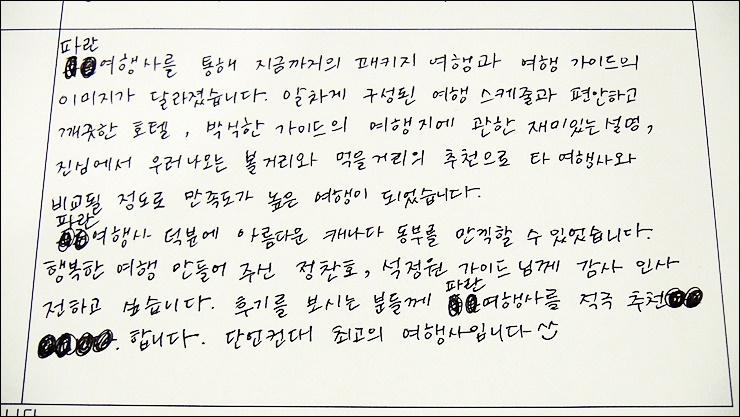 파란
여행사를 통해 지금까지의 패키지 여행과 여행 가이드의
이미지가 달라졌습니다. 알차게 구성된 여행 스케줄과 편안하고
깨끗한 호텔, 박식한 가이드의 여행지에 관한 재미있는 설명,
진심에서 우러나오는 볼거리와 먹을거리의 추천으로 타 여행사와
비교될 정도로 만족도가 높은 여행이 되었습니다.
파란
여행사 덕분에 아름다운 캐나다 동부를 만끽할 수 있었습니다.
행복한 여행 만들어 주신 정찬호, 석정원 가이드님께 감사 인사
파란
전하고 싶습니다. 후기를 보시는 분들께 여행사를 적극 추천
합니다. 단언컨대 최고의 여행사입니다 ^^